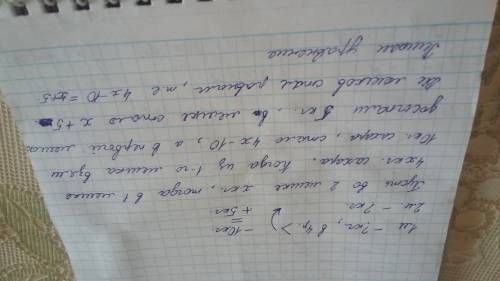 1м - ?кг, в 4р. > - 10кг.
2м - ?кг. + 5кг.
Пусть во 2 мешке xкг. тогда в 1 мешке
4x кг. сахара. Когда из 1-го мешка взяли
10кг. сахара, стало 4x-10, а в первый мешок
досыпали 5 кг., в мешке стало x+5
мешков стал равным, т.е 4x-10=x+5
Решаем уравнение